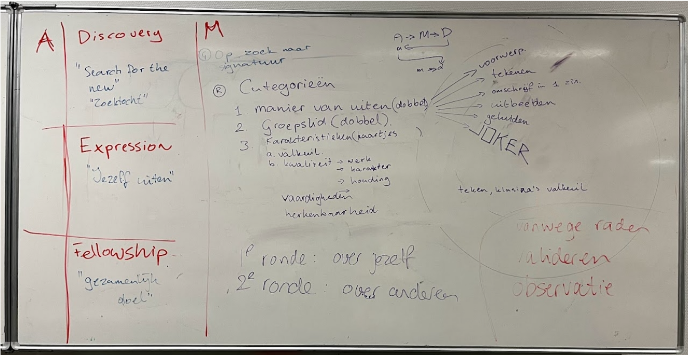 A
Discovery
"Search for the
new"
"Zoektocht"
Expression
"Jezelf uiten"
Fellowship
"gezamenlijk
doel"
M
Op zoek naar
A → M → D
m → d
® Categorieën
1 manier van uiten (dobbel)
2 Groepslid (dobbel)
3. Karakteristieken (kaartjes)
a. valkuil
b. kwaliteit → werk
→ karakter
→ houding
vaardigheden
herkenbaarheid
voorwerp
tekenen
omschrijf in 1 zin
uitbeelden
geluiden
JOKER
valkuil
1e ronde: over jezelf
2e ronde: over anderen
vanwege raden
valideren
observatie